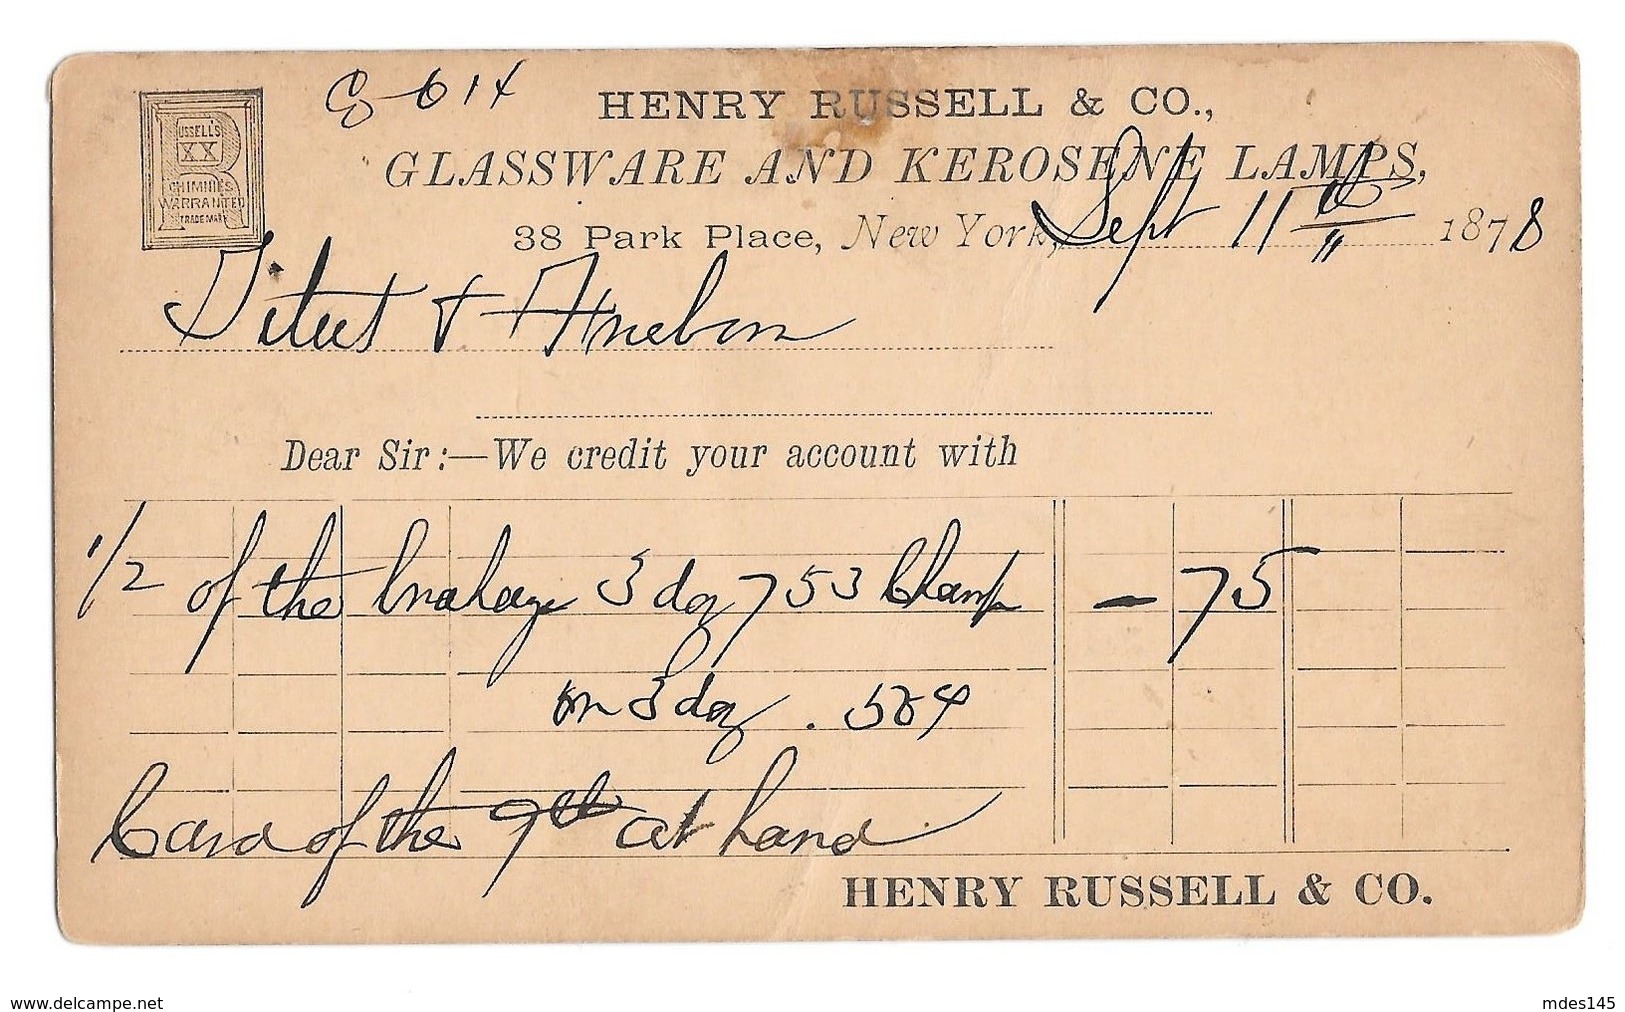 614
HENRY RUSSELL & CO.,
RUSSELL'S
XX
CHIMNIES
WARRANTED
TRADE MARK
GLASSWARE AND KEROSENE LAMPS,
38 Park Place, New York, Sept 11th 1878
&
Dear Sir:—We credit your account with
1/2 of the breakage 3 doz 753 — 75
on 3 doz. 584
Card of the 9th at hand
HENRY RUSSELL & CO.
www.delcampe.net
mdes145